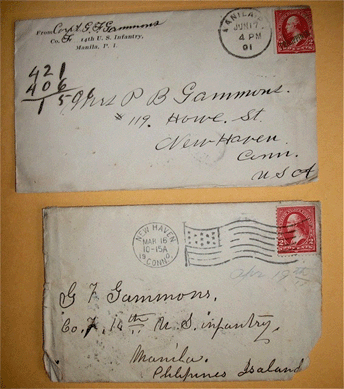 From Corp'l G. F. Gammons
Co. F. 14th U. S. Infantry,
Manila, P. I.
MANILA
JUN 17
4 PM
01
421
406
15
Mrs P B Gammons.
# 119. Howe. St.
New Haven
Conn.
U S A
NEW HAVEN
MAR 16
10-15A
CONN.
2 2
Apr 19th
G F Gammons.
Co. F, 14th U. S. infantry,
Manila.
Philipines Isaland